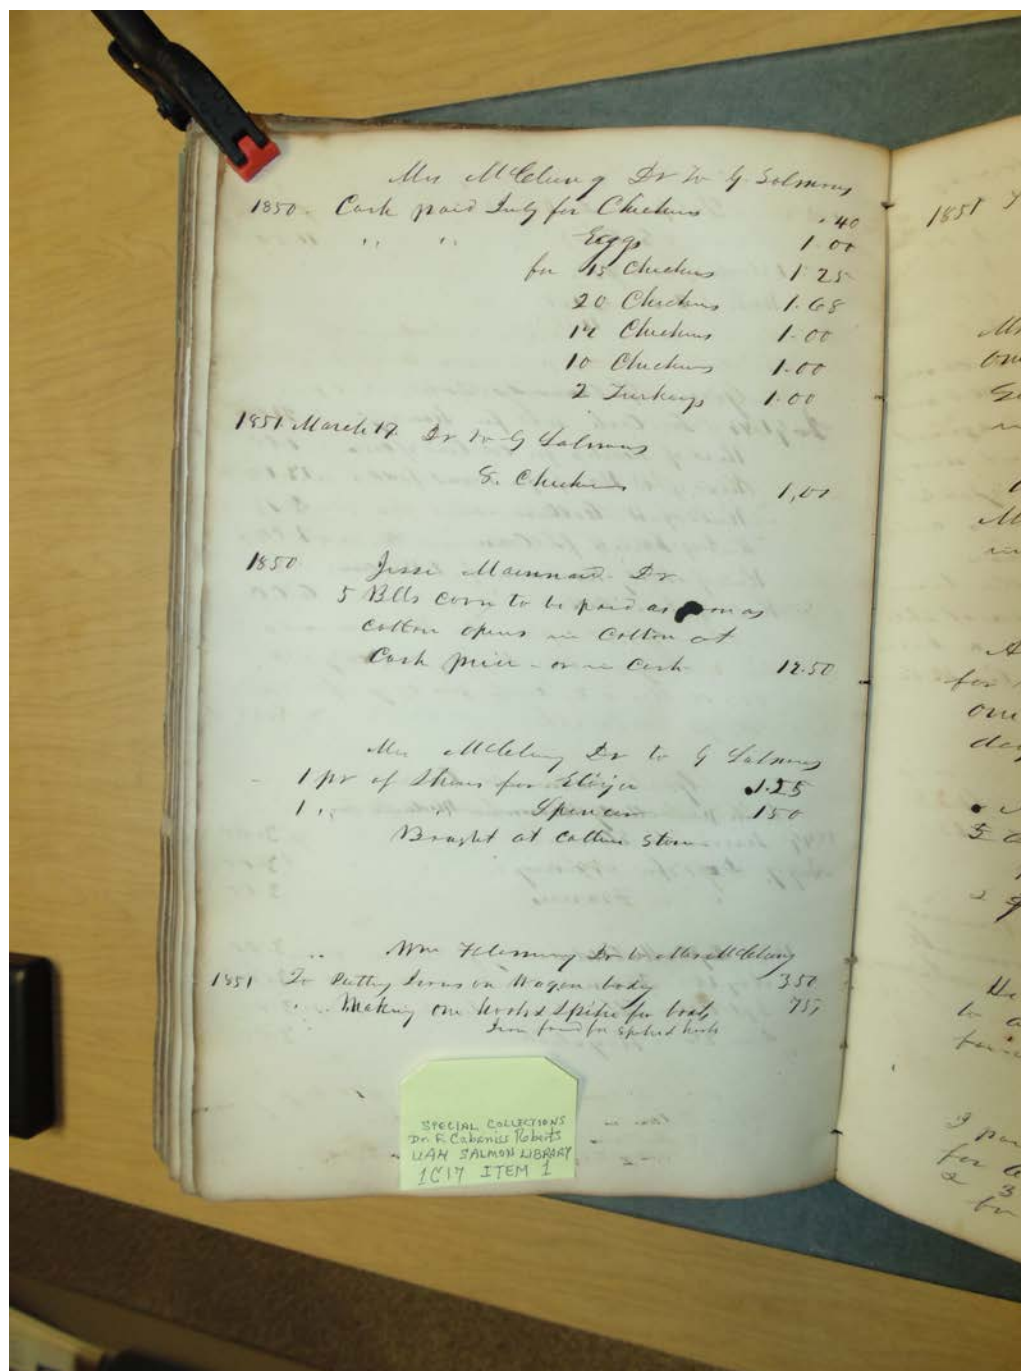 Mrs McClung Dr To G Salmons
1850. Cash paid July for Chickens .40
" " Eggs 1.00
for 15 Chickens 1.25
20 Chickens 1.68
12 Chickens 1.00
10 Chickens 1.00
2 Turkeys 1.00
1851 March 19. Dr to G Salmons
8. Chickens 1,00
1850 Jesse Dr
5 Blls corn to be paid as soon as
cotton opens in Cotton at
Cash price - or in Cash 12.50
Mrs McClung Dr to G Salmons
1 pr of Shoes for 1.25
1 " " Spencer 150
Bought at Store
" Wm Flemming Dr to Mrs McClung
1851 To Putting Irons on Wagon body 350
" Making one hook & for boat 75
Iron found for hook
SPECIAL COLLECTIONS
Dr. F. Cabaniss Roberts
UAH SALMON LIBRARY
1C17 ITEM 1
1851
one
for
one
5
2
to a
I
for
2 3
for